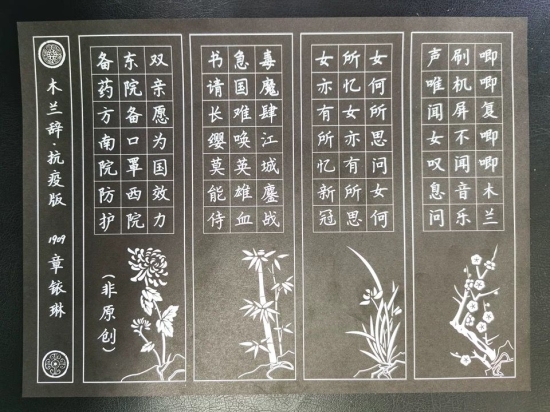 唧唧复唧唧木兰
刷机屏不闻音乐
声唯闻女叹息问
女何所思问女何
所忆女亦有所思
女亦有所忆新冠
毒魔肆江城鏖战
急国难唤英雄血
书请长缨莫能侍
双亲愿为国效力
东院备口罩西院
备药方南院防护
(非原创)
木兰辞·抗疫版 1909 章铱琳